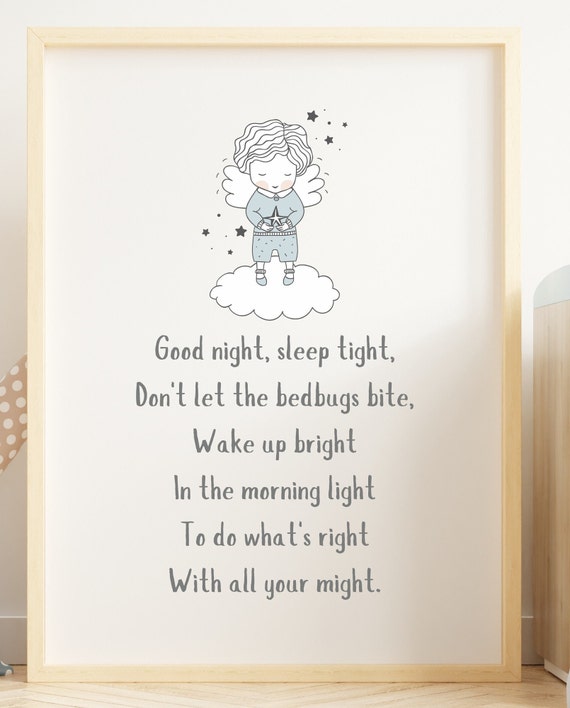 Good night, sleep tight,
Don't let the bedbugs bite,
Wake up bright
In the morning light
To do what's right
With all your might.